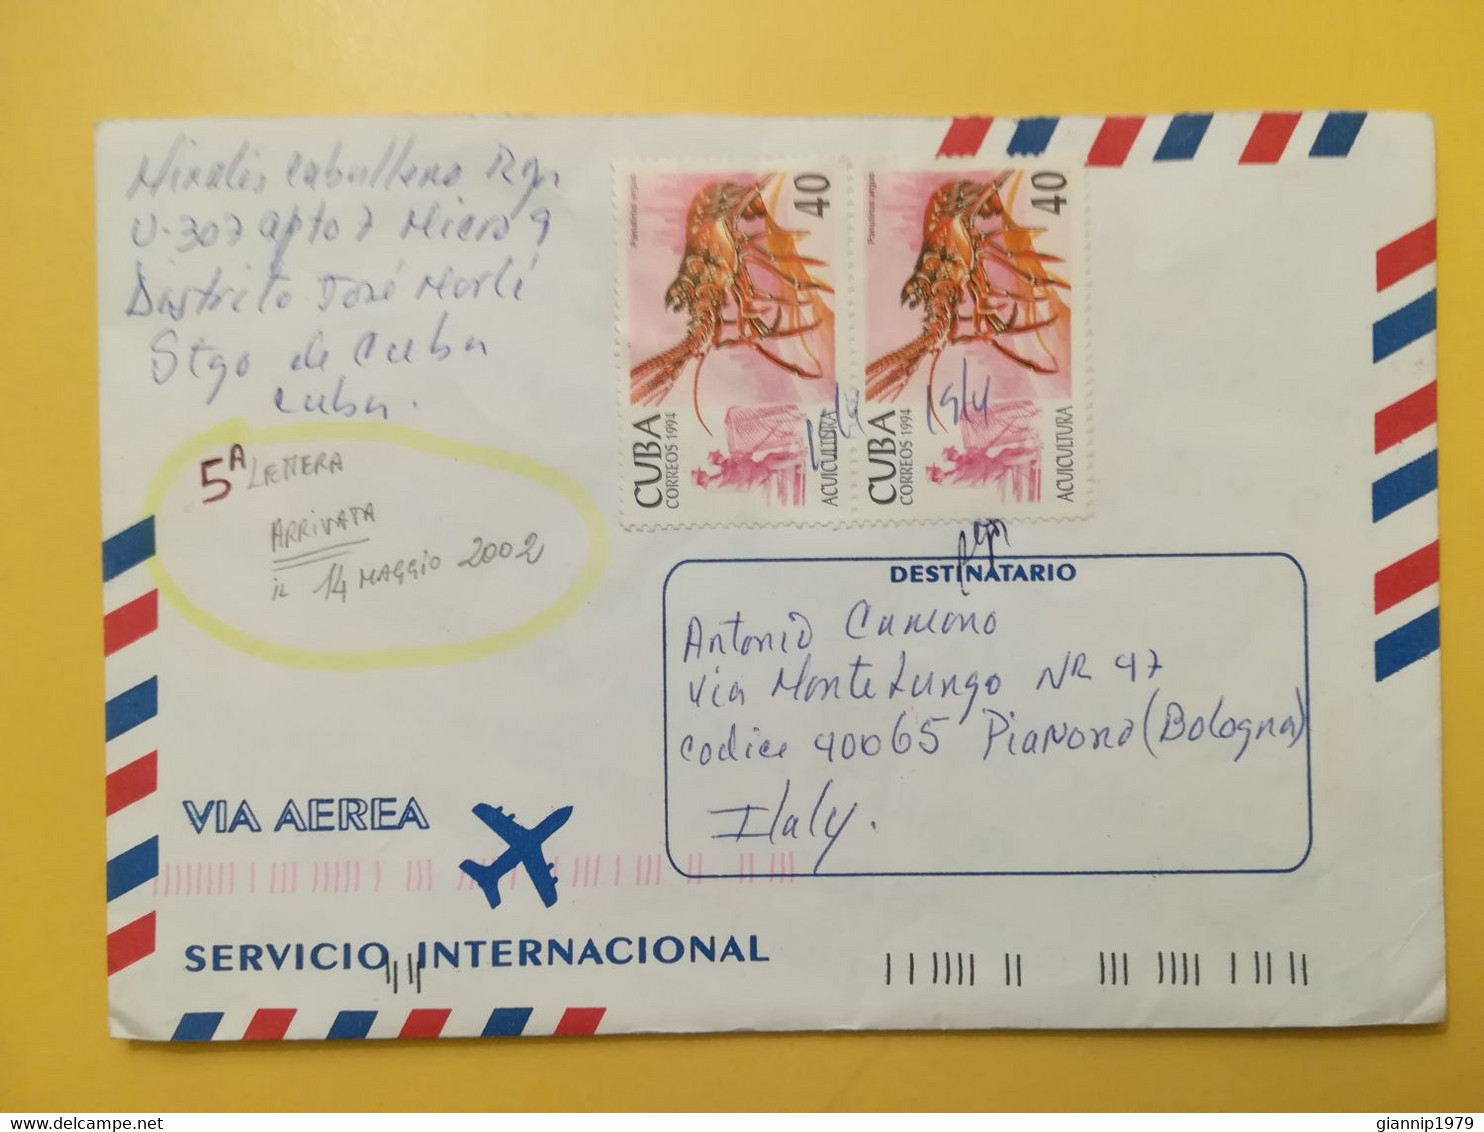 Miralis Caballero Rgz
U-307 apto 7 Micro 9
Distrito José Martí
Stgo de Cuba
Cuba.
5A LETTERA
ARRIVATA
IL 14 MAGGIO 2002
Panulirus argus
40
CUBA
CORREOS 1994
ACUICULTURA
Panulirus argus
40
CUBA
CORREOS 1994
ACUICULTURA
19/4
DESTINATARIO
Antonio
Via Monte Lungo NR 47
Codice 40065 Pianoro (Bologna)
Italy.
VIA AEREA
SERVICIO INTERNACIONAL
giannip1979